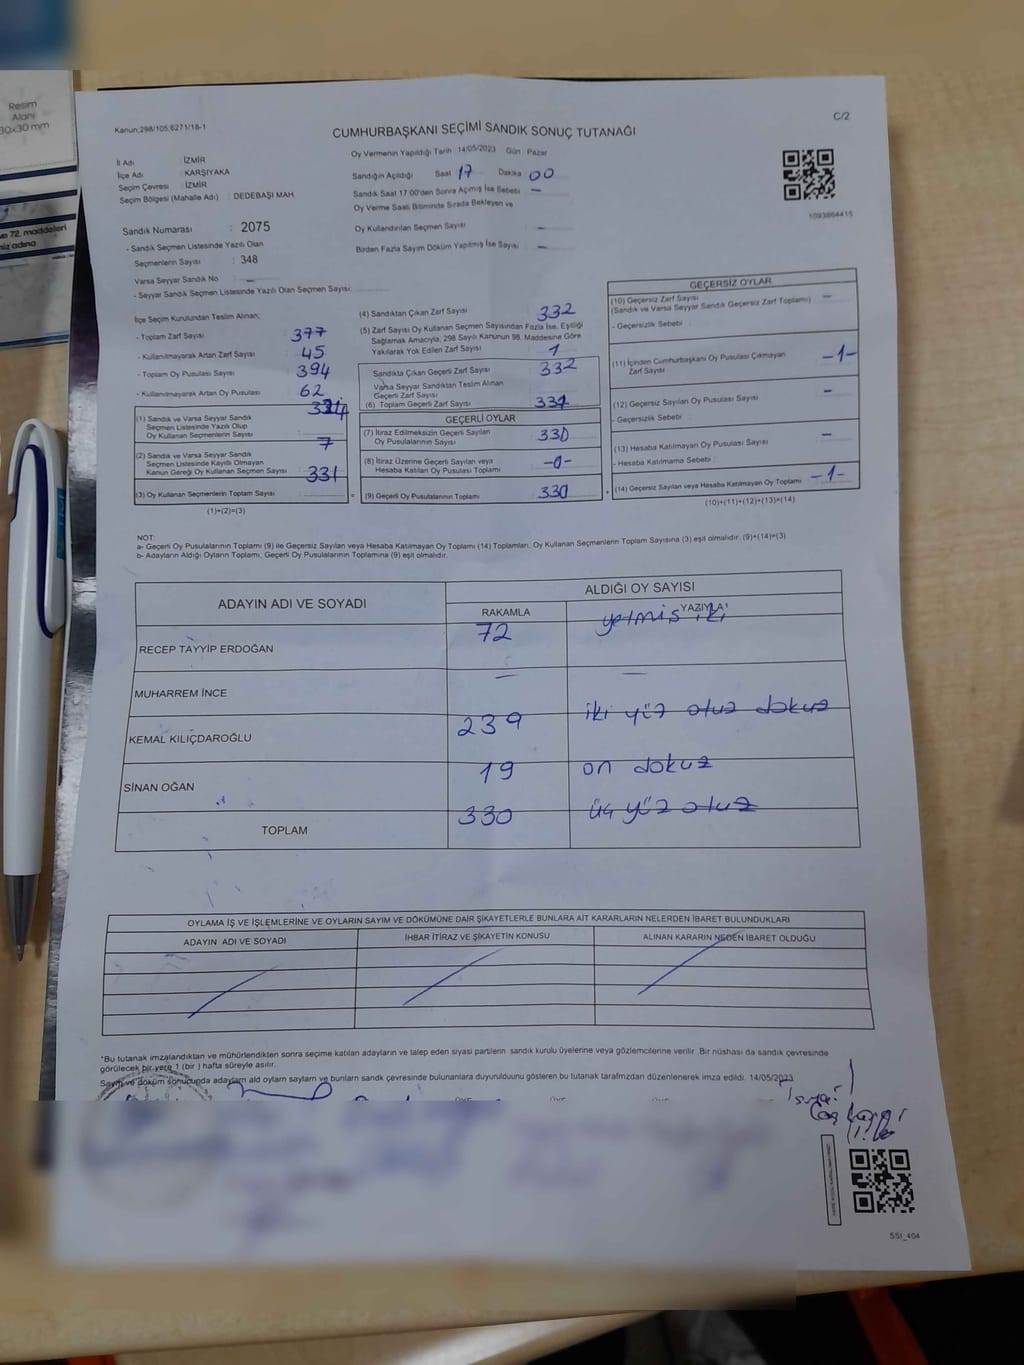 Resim
Alanı
30x30 mm
ve 72. maddeleri
niz adına
Kanun:298/105;6271/18-1
C/2
CUMHURBAŞKANI SEÇİMİ SANDIK SONUÇ TUTANAĞI
İl Adı : İZMİR
İlçe Adı : KARŞIYAKA
Seçim Çevresi : İZMİR
Seçim Bölgesi (Mahalle Adı) : DEDEBAŞI MAH.
Oy Vermenin Yapıldığı Tarih : 14/05/2023 Gün : Pazar
Sandığın Açıldığı Saat 17 Dakika 00
Sandık Saat 17:00'den Sonra Açılmış İse Sebebi –
Oy Verme Saati Bitiminde Sırada Bekleyen ve
Oy Kullandırılan Seçmen Sayısı –
Birden Fazla Sayım Döküm Yapılmış İse Sayısı –
1093864415
Sandık Numarası : 2075
- Sandık Seçmen Listesinde Yazılı Olan
Seçmenlerin Sayısı : 348
Varsa Seyyar Sandık No –
- Seyyar Sandık Seçmen Listesinde Yazılı Olan Seçmen Sayısı:
İlçe Seçim Kurulundan Teslim Alınan;
- Toplam Zarf Sayısı 377
- Kullanılmayarak Artan Zarf Sayısı 45
- Toplam Oy Pusulası Sayısı 394
- Kullanılmayarak Artan Oy Pusulası 62
(1) Sandık ve Varsa Seyyar Sandık
Seçmen Listesinde Yazılı Olup
Oy Kullanan Seçmenlerin Sayısı
7
(2) Sandık ve Varsa Seyyar Sandık
Seçmen Listesinde Kayıtlı Olmayan
Kanun Gereği Oy Kullanan Seçmen Sayısı 331
(3) Oy Kullanan Seçmenlerin Toplam Sayısı
(1)+(2)=(3)
(4) Sandıktan Çıkan Zarf Sayısı 332
(5) Zarf Sayısı Oy Kullanan Seçmen Sayısından Fazla İse, Eşitliği
Sağlamak Amacıyla, 298 Sayılı Kanunun 98. Maddesine Göre
Yakılarak Yok Edilen Zarf Sayısı 1
Sandıkta Çıkan Geçerli Zarf Sayısı 332
Varsa Seyyar Sandıktan Teslim Alınan
Geçerli Zarf Sayısı
(6) Toplam Geçerli Zarf Sayısı 331
GEÇERLİ OYLAR
(7) İtiraz Edilmeksizin Geçerli Sayılan
Oy Pusulalarının Sayısı 330
(8) İtiraz Üzerine Geçerli Sayılan veya
Hesaba Katılan Oy Pusulası Toplamı -0-
(9) Geçerli Oy Pusulalarının Toplamı 330
GEÇERSİZ OYLAR
(10) Geçersiz Zarf Sayısı
(Sandık ve Varsa Seyyar Sandık Geçersiz Zarf Toplamı) –
- Geçersizlik Sebebi :
(11) İçinden Cumhurbaşkanı Oy Pusulası Çıkmayan
Zarf Sayısı -1-
(12) Geçersiz Sayılan Oy Pusulası Sayısı –
- Geçersizlik Sebebi :
(13) Hesaba Katılmayan Oy Pusulası Sayısı –
- Hesaba Katılmama Sebebi :
(14) Geçersiz Sayılan veya Hesaba Katılmayan Oy Toplamı -1-
(10)+(11)+(12)+(13)=(14)
NOT:
a- Geçerli Oy Pusulalarının Toplamı (9) ile Geçersiz Sayılan veya Hesaba Katılmayan Oy Toplamı (14) Toplamları, Oy Kullanan Seçmenlerin Toplam Sayısına (3) eşit olmalıdır. (9)+(14)=(3)
b- Adayların Aldığı Oyların Toplamı, Geçerli Oy Pusulalarının Toplamına (9) eşit olmalıdır.
ADAYIN ADI VE SOYADI
ALDIĞI OY SAYISI
RAKAMLA YAZIYLA
RECEP TAYYİP ERDOĞAN 72 yetmiş iki
MUHARREM İNCE – –
KEMAL KILIÇDAROĞLU 239 iki yüz otuz dokuz
SİNAN OĞAN 19 on dokuz
TOPLAM 330 üç yüz otuz
OYLAMA İŞ VE İŞLEMLERİNE VE OYLARIN SAYIM VE DÖKÜMÜNE DAİR ŞİKAYETLERLE BUNLARA AİT KARARLARIN NELERDEN İBARET BULUNDUKLARI
ADAYIN ADI VE SOYADI İHBAR İTİRAZ VE ŞİKAYETİN KONUSU ALINAN KARARIN NEDEN İBARET OLDUĞU
*Bu tutanak imzalandıktan ve mühürlendikten sonra seçime katılan adayların ve talep eden siyasi partilerin sandık kurulu üyelerine veya gözlemcilerine verilir. Bir nüshası da sandık çevresinde
görülecek bir yere 1 (bir) hafta süreyle asılır.
Sayım ve döküm sonucunda adayların aldı oyların sayıların ve bunların sandık çevresinde bulunanlara duyurulduğunu gösteren bu tutanak tarafımzdan düzenlenerek imza edildi. 14/05/2023
SSI_404